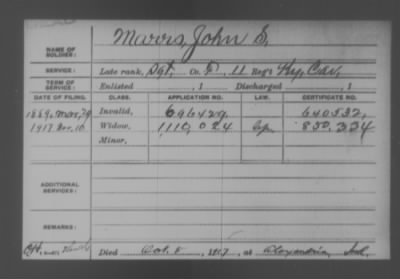 NAME OF SOLDIER: Marrs, John S.
SERVICE: Late rank, Sgt, Co. F, 11 Reg't Ky. Cav.
TERM OF SERVICE: Enlisted , 1 Discharged , 1
DATE OF FILING. CLASS. APPLICATION NO. LAW. CERTIFICATE NO.
1889, Mar, 29 Invalid, 696429. 640532.
1917 Nov. 10 Widow, 1110,024 850,334
Minor,
ADDITIONAL SERVICES:
REMARKS:
Died Oct. 5, 1917, at Alexandria, Ind.